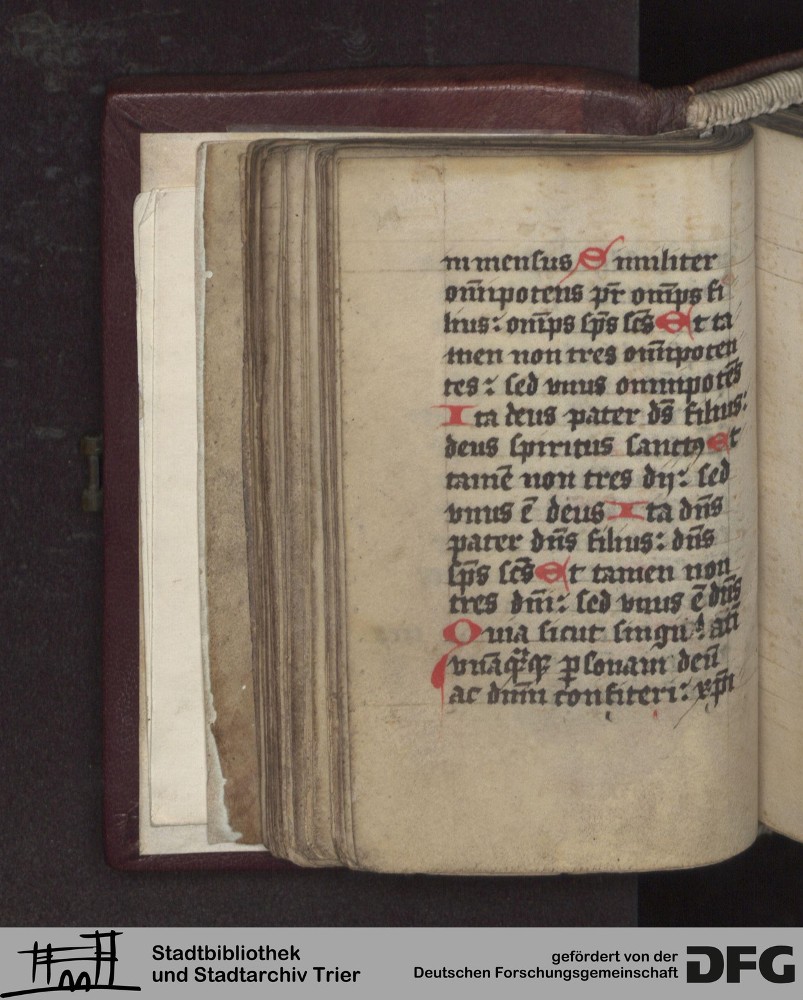 mmensus Similiter
om̄ipotens pr̄ om̄ps fi
lius: om̄ps sp̄s sc̄s Et ta
men non tres om̄ipoten
tes: sed vnus omnipotēs
Ita deus pater ds̄ filius:
deus spiritus sanctꝰ et
tamē non tres dij: sed
vnus ē deus Ita dn̄s
pater dn̄s filius: dn̄s
sp̄s sc̄s Et tamen non
tres dn̄i: sed vnus ē dn̄s
Quia sicut
vnāq̄q ꝑsonam deū
ac dnm̄ confiteri: xp̄i
Stadtbibliothek
und Stadtarchiv Trier
gefördert von der
Deutschen Forschungsgemeinschaft
DFG